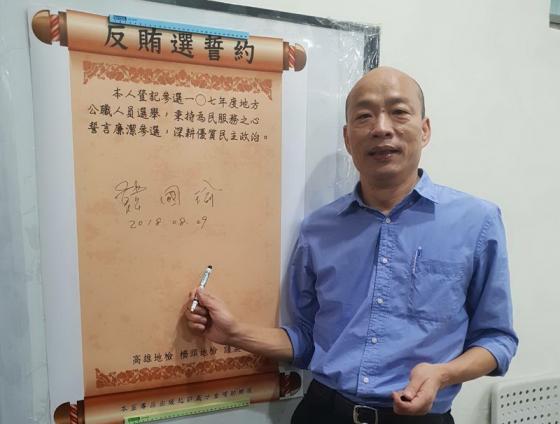 反賄選誓約
本人登記參選一〇七年度地方
公職人員選舉，秉持為民服務之心
誓言廉潔參選，深耕優質民主政治。
韓國瑜
2018.08.09
高雄地檢 橋頭地檢